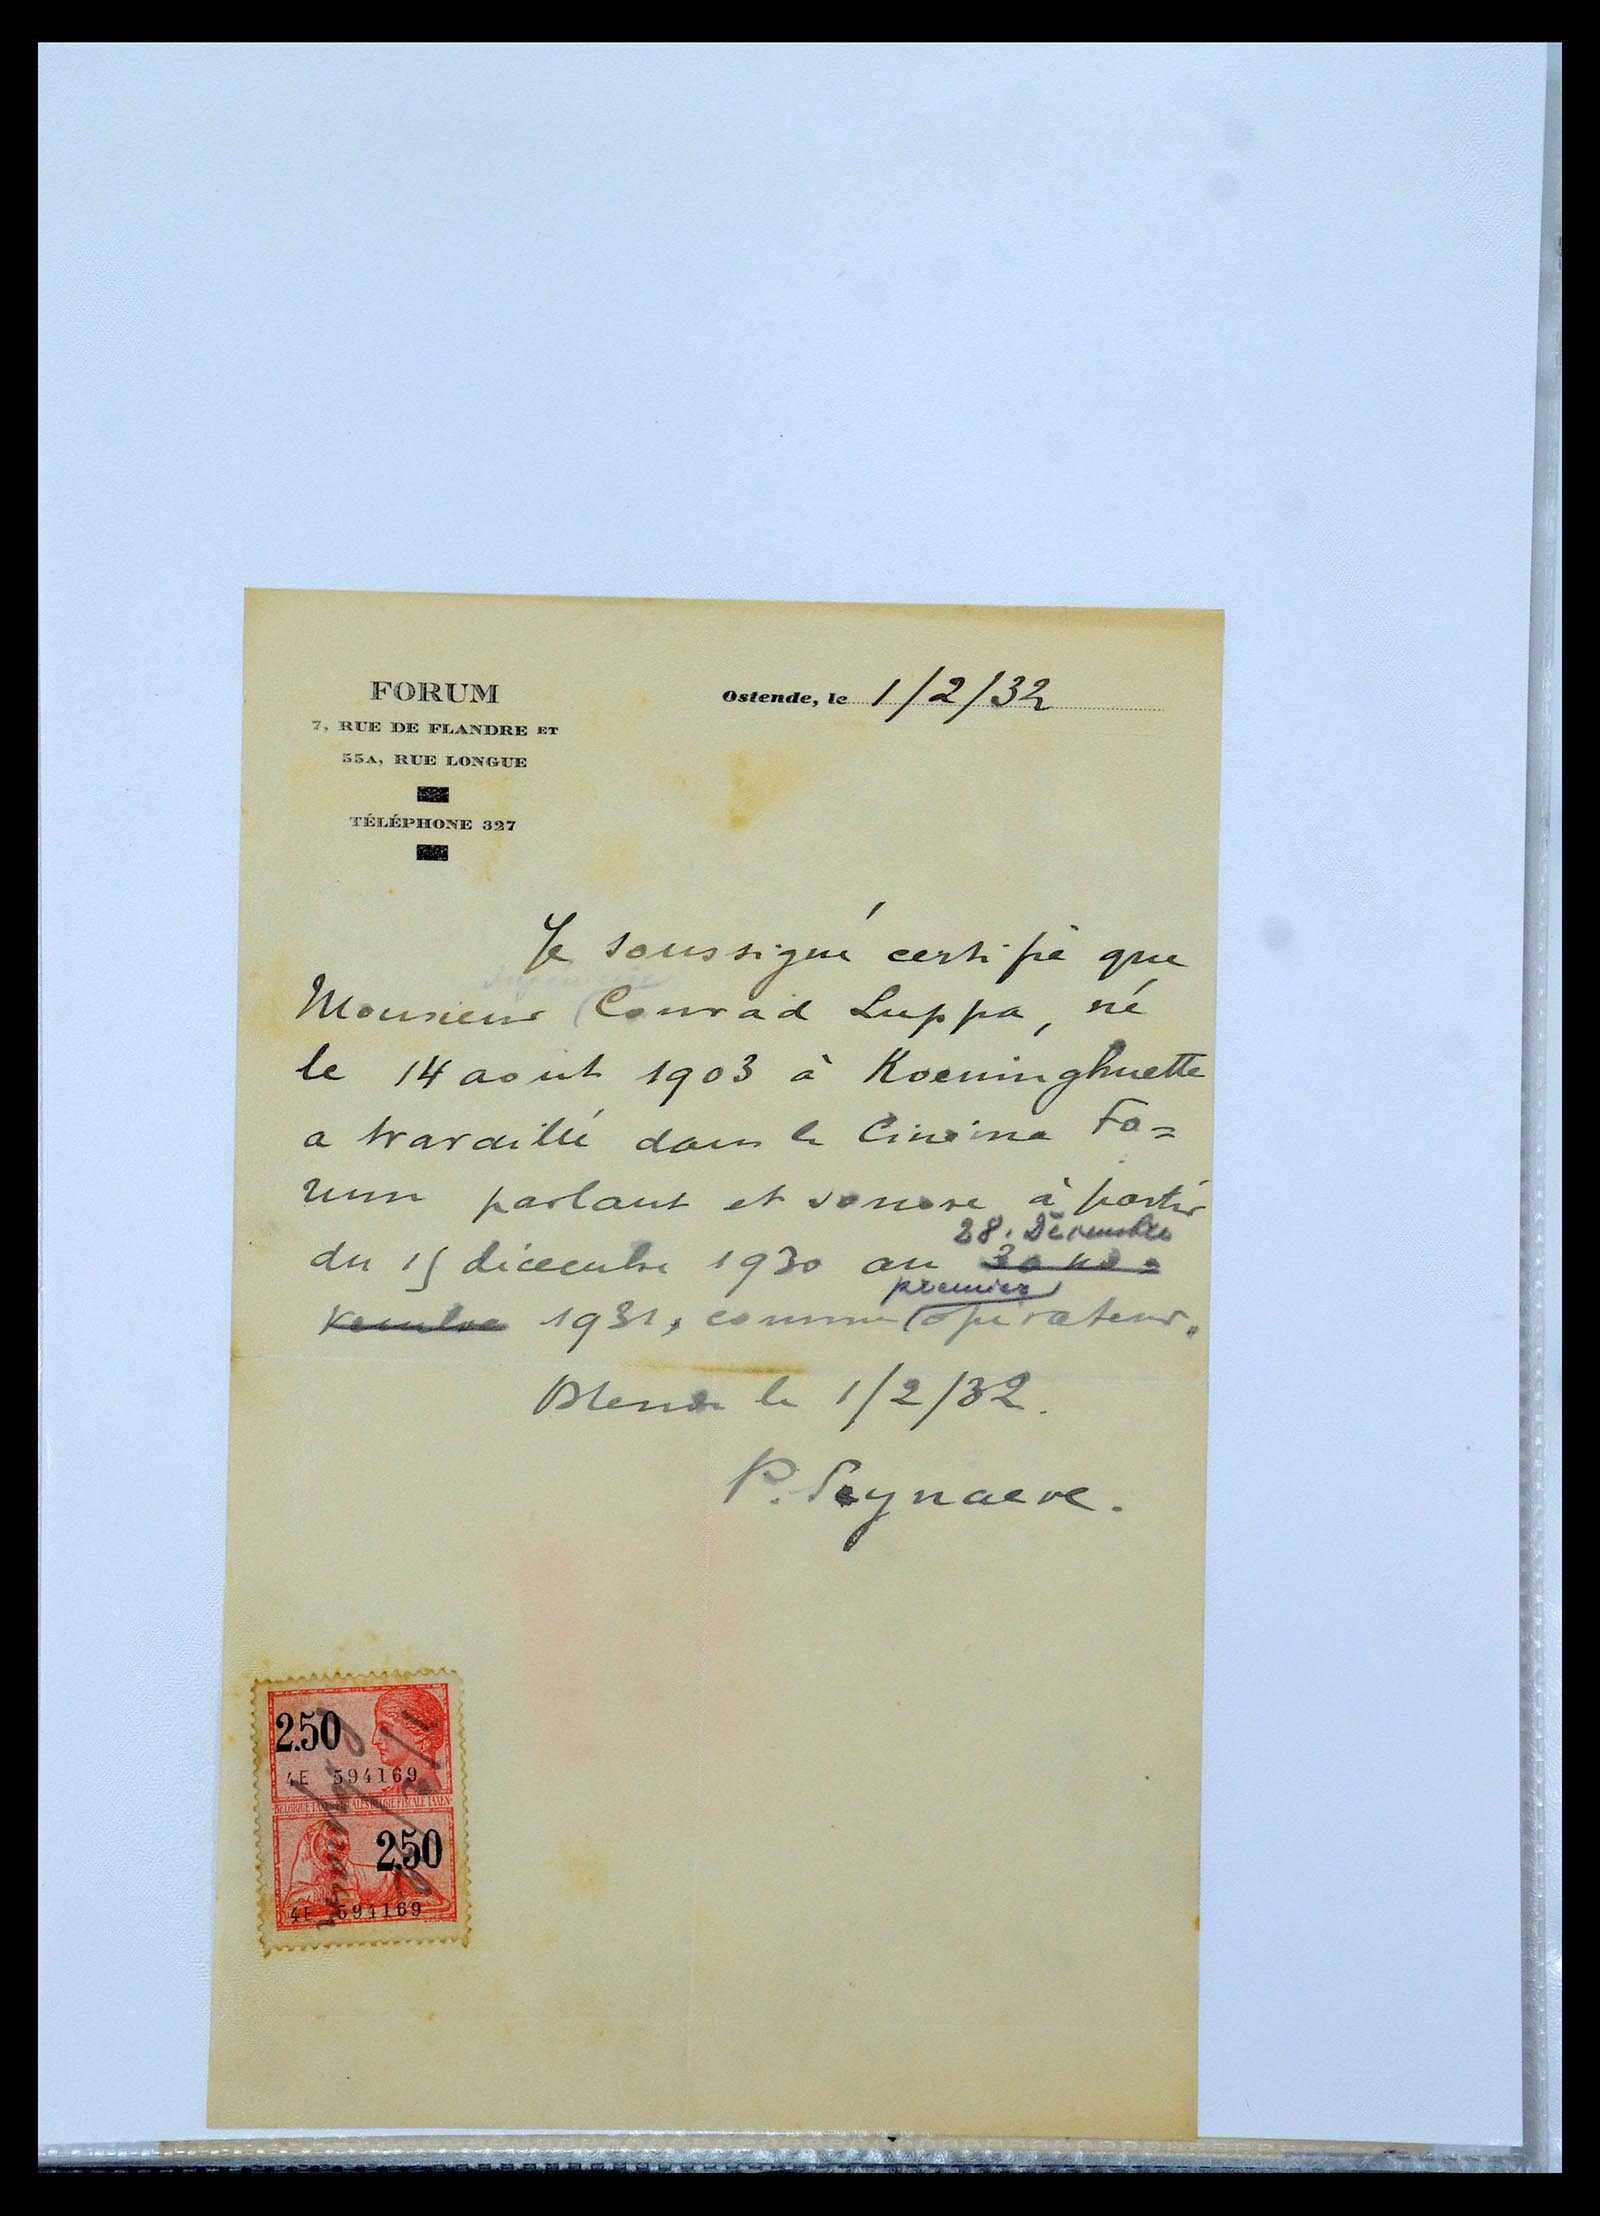 FORUM
7, RUE DE FLANDRE ET
55A, RUE LONGUE
TÉLÉPHONE 327
Ostende, le 1/2/32
Je soussigné certifie que
Monsieur Conrad Luppa, né
le 14 aout 1903 à Koeninghuette
a travaillé dans le Cinéma Fo=
rum parlant et sonore à partir
28. Décembre
du 15 décembre 1930 au 30 no=
premier
vembre 1931, comme opérateur.
Ostende le 1/2/32.
P. Seynaeve.
2.50
4E 594169
BELGIQUE TAXES FISCALES BELGIE FISCALE TAXEN
2.50
4E 594169